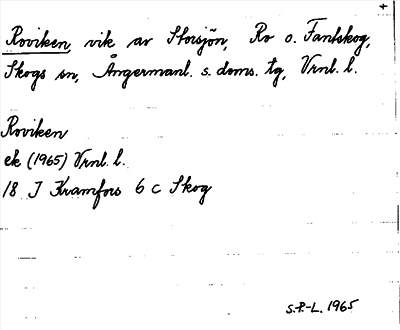 Roviken, vik av Storsjön, Ro o. Fantskog,
Skogs sn, Ångermanl. s. doms. tg, Vrnl. l.
Roviken
ek (1965) Vrnl. l.
18 J Kramfors 6 c Skog
S.P-L. 1965